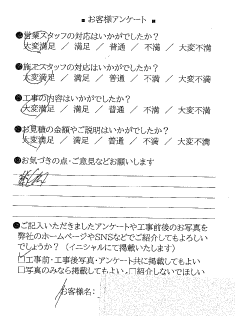 ■ お客様アンケート ■
●営業スタッフの対応はいかがでしたか？
大変満足 ／ 満足 ／ 普通 ／ 不満 ／ 大変不満
●施工スタッフの対応はいかがでしたか？
大変満足 ／ 満足 ／ 普通 ／ 不満 ／ 大変不満
●工事の内容はいかがでしたか？
大変満足 ／ 満足 ／ 普通 ／ 不満 ／ 大変不満
●お見積の金額やご説明はいかがでしたか？
大変満足 ／ 満足 ／ 普通 ／ 不満 ／ 大変不満
●お気づきの点・ご意見などお願いします
●ご記入いただきましたアンケートや工事前後のお写真を
弊社のホームページやSNSなどでご紹介してもよろしい
でしょうか？（イニシャルにて掲載いたします）
□工事前・工事後写真・アンケート共に掲載してもよい
□写真のみなら掲載してもよい □紹介しないでほしい
お客様名：